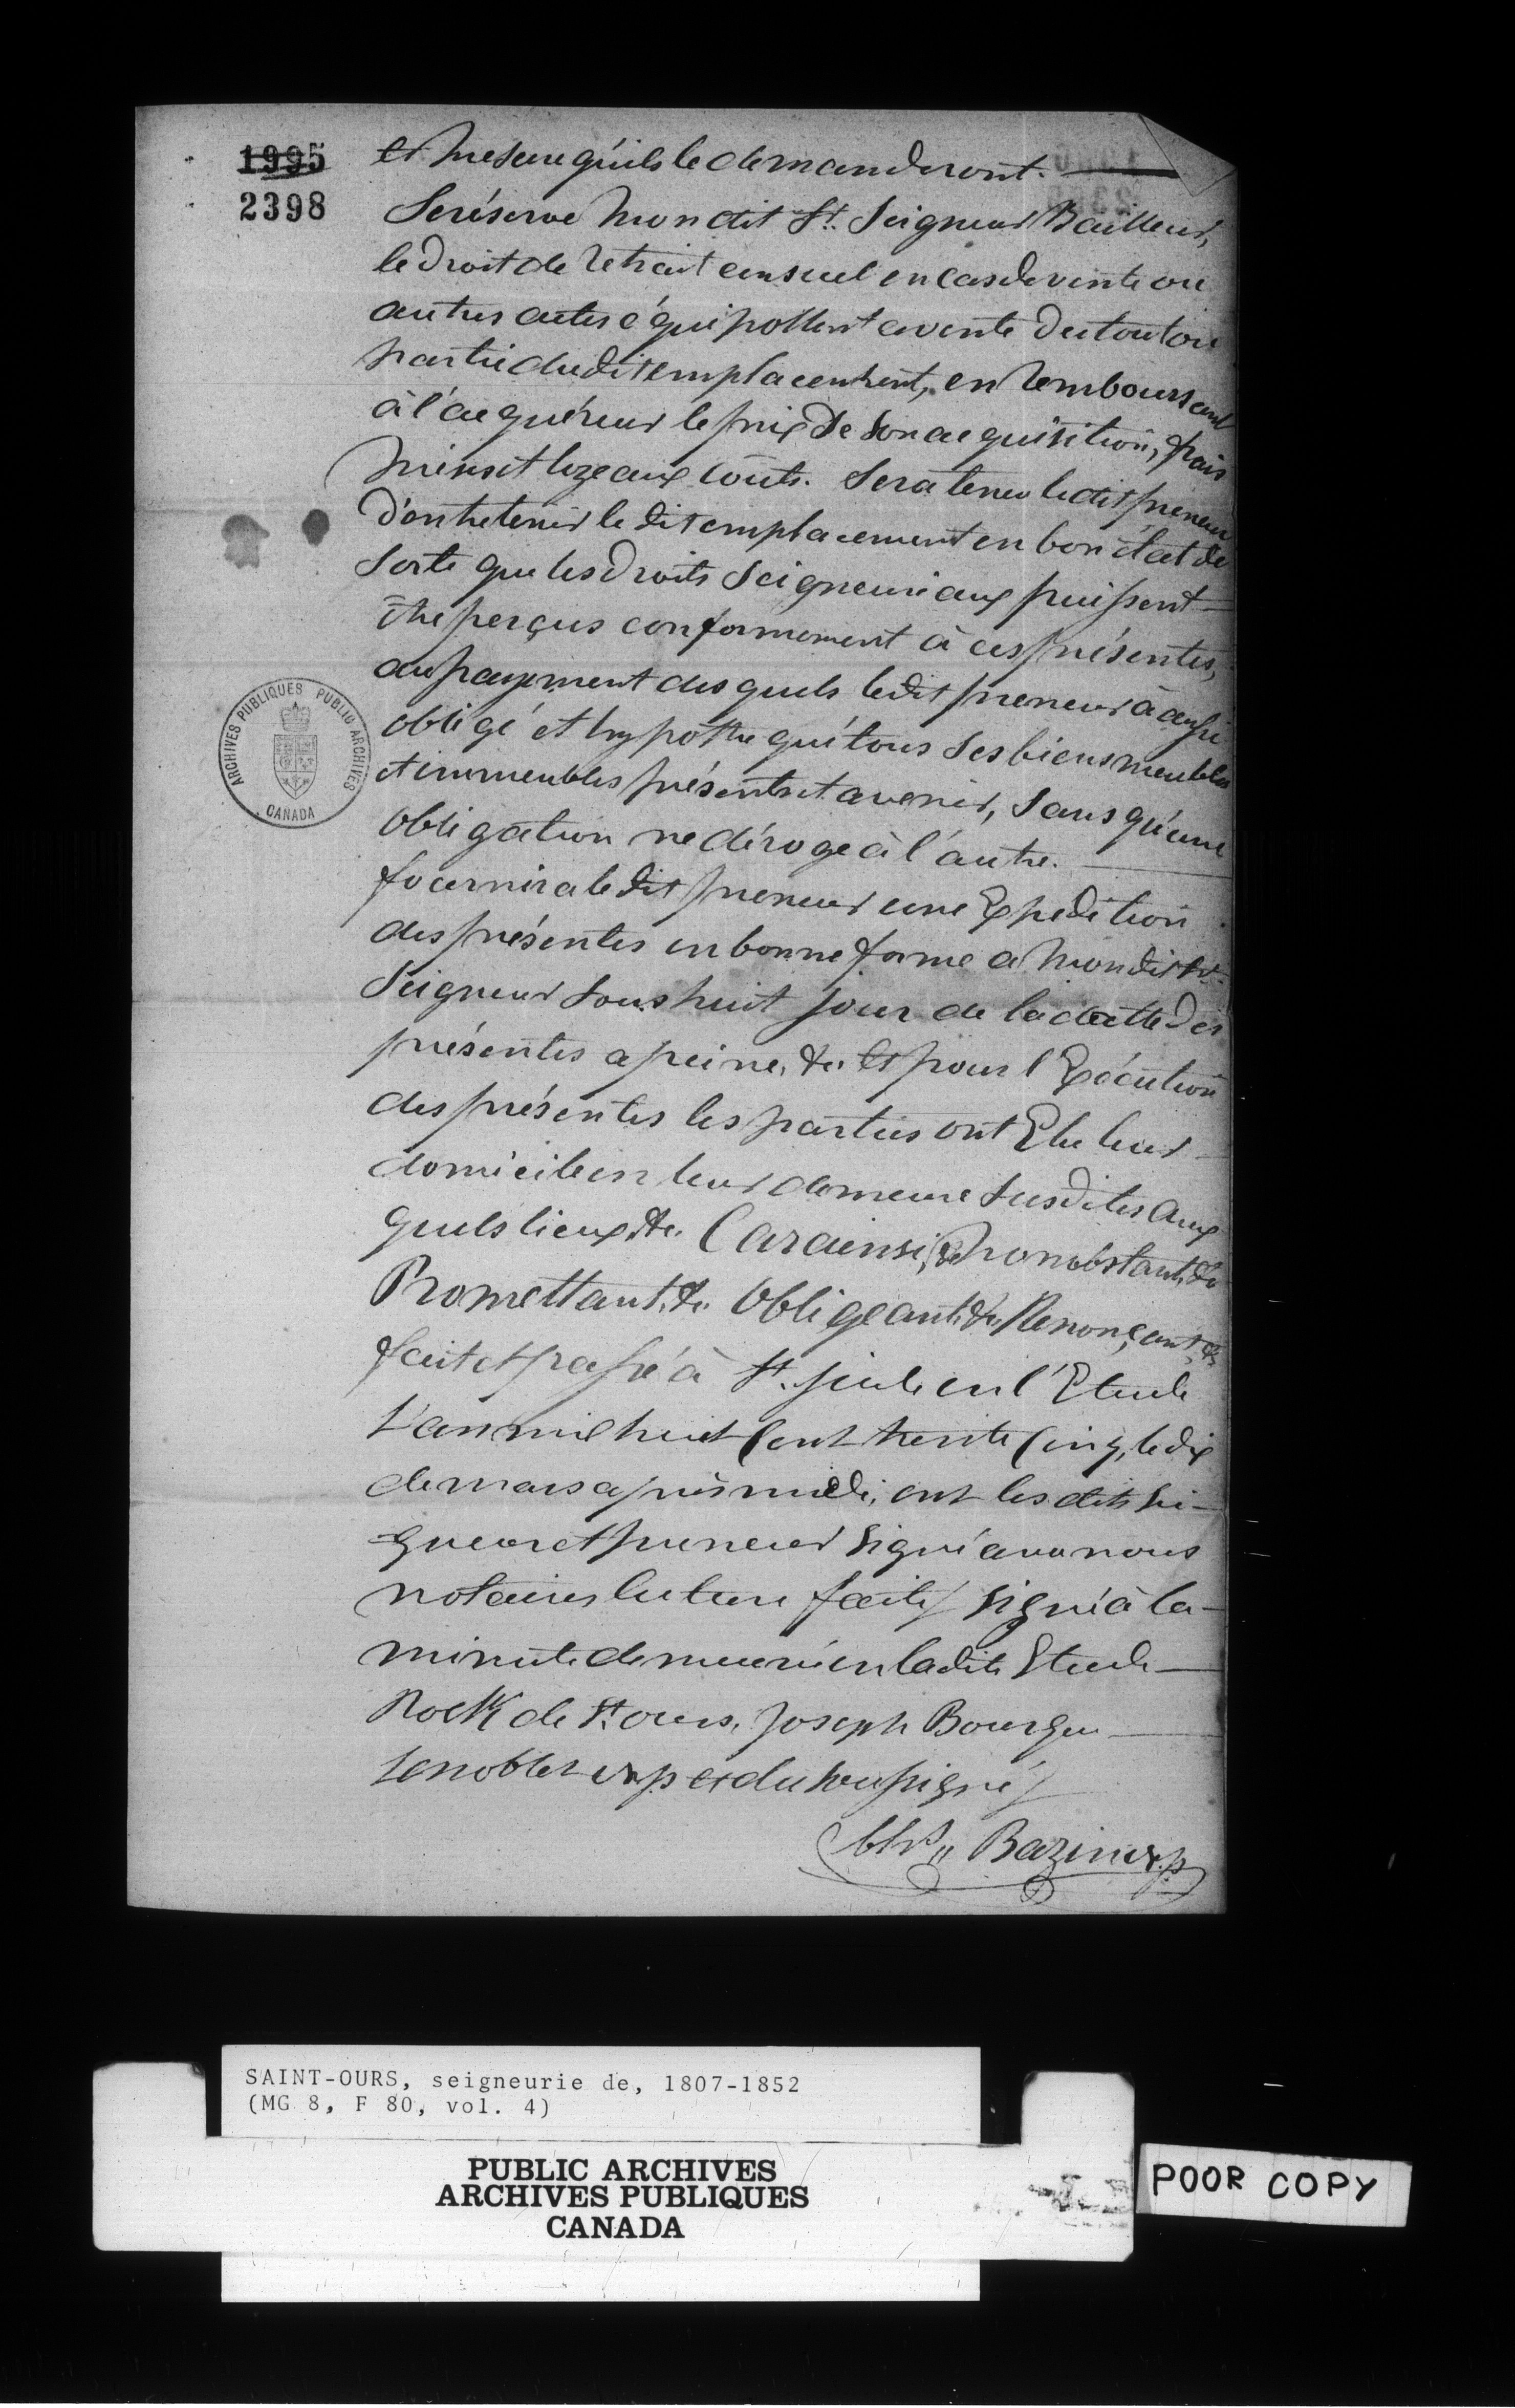 1995
2398
et mesure qu'ils le demanderont.
Se réserve mon dit St. Seigneur Bailleur,
le droit de retrait censuel en cas de vente ou
autres actes équipollent a vente du tout ou
partie du dit emplacement, en remboursant
à l'acquéreur le prix de son acquisition, frais
mises et lozeaux coûts. Sera tenu le dit preneur
d'entretenir le dit emplacement en bon état de
sorte que les droits Seigneuriaux puissent
être perçus conformement à ces présentes,
au payement des quels le dit preneur à aussi
obligé et hypothequé tous ses biens meubles
et immeubles présents et avenir, sans qu'une
obligation ne déroge à l'autre.
fournira le dit preneur une Expedition
des présentes en bonne forme a mon dit Sr.
Seigneur sous huit jour de la datte des
présentes a peine, &c. Et pour l'Exécution
des présentes les parties ont Elu leur
domicile en leur demeure susdites aux
quels lieux &c. Car ainsi, &c nonobstant, &c
Promettant, &c. Obligeant, &c. Renonçant, &c.
fait et passé à St. Jude en l'Etude
L'an mil huit Cent trente Cinq, le dix
de mars après midi, ont les dits Sei-
gneur et preneur signé avec nous
notaires lecture faite / signé à la
minute demeurée en la dite Etude
Roch de St. ours, Joseph Bourgeu
Lenoblet N.p et du soussigné /
Bazin N.p
ARCHIVES PUBLIQUES PUBLIC ARCHIVES
CANADA
SAINT-OURS, seigneurie de, 1807-1852
(MG 8, F 80, vol. 4)
PUBLIC ARCHIVES
ARCHIVES PUBLIQUES
CANADA
POOR COPY